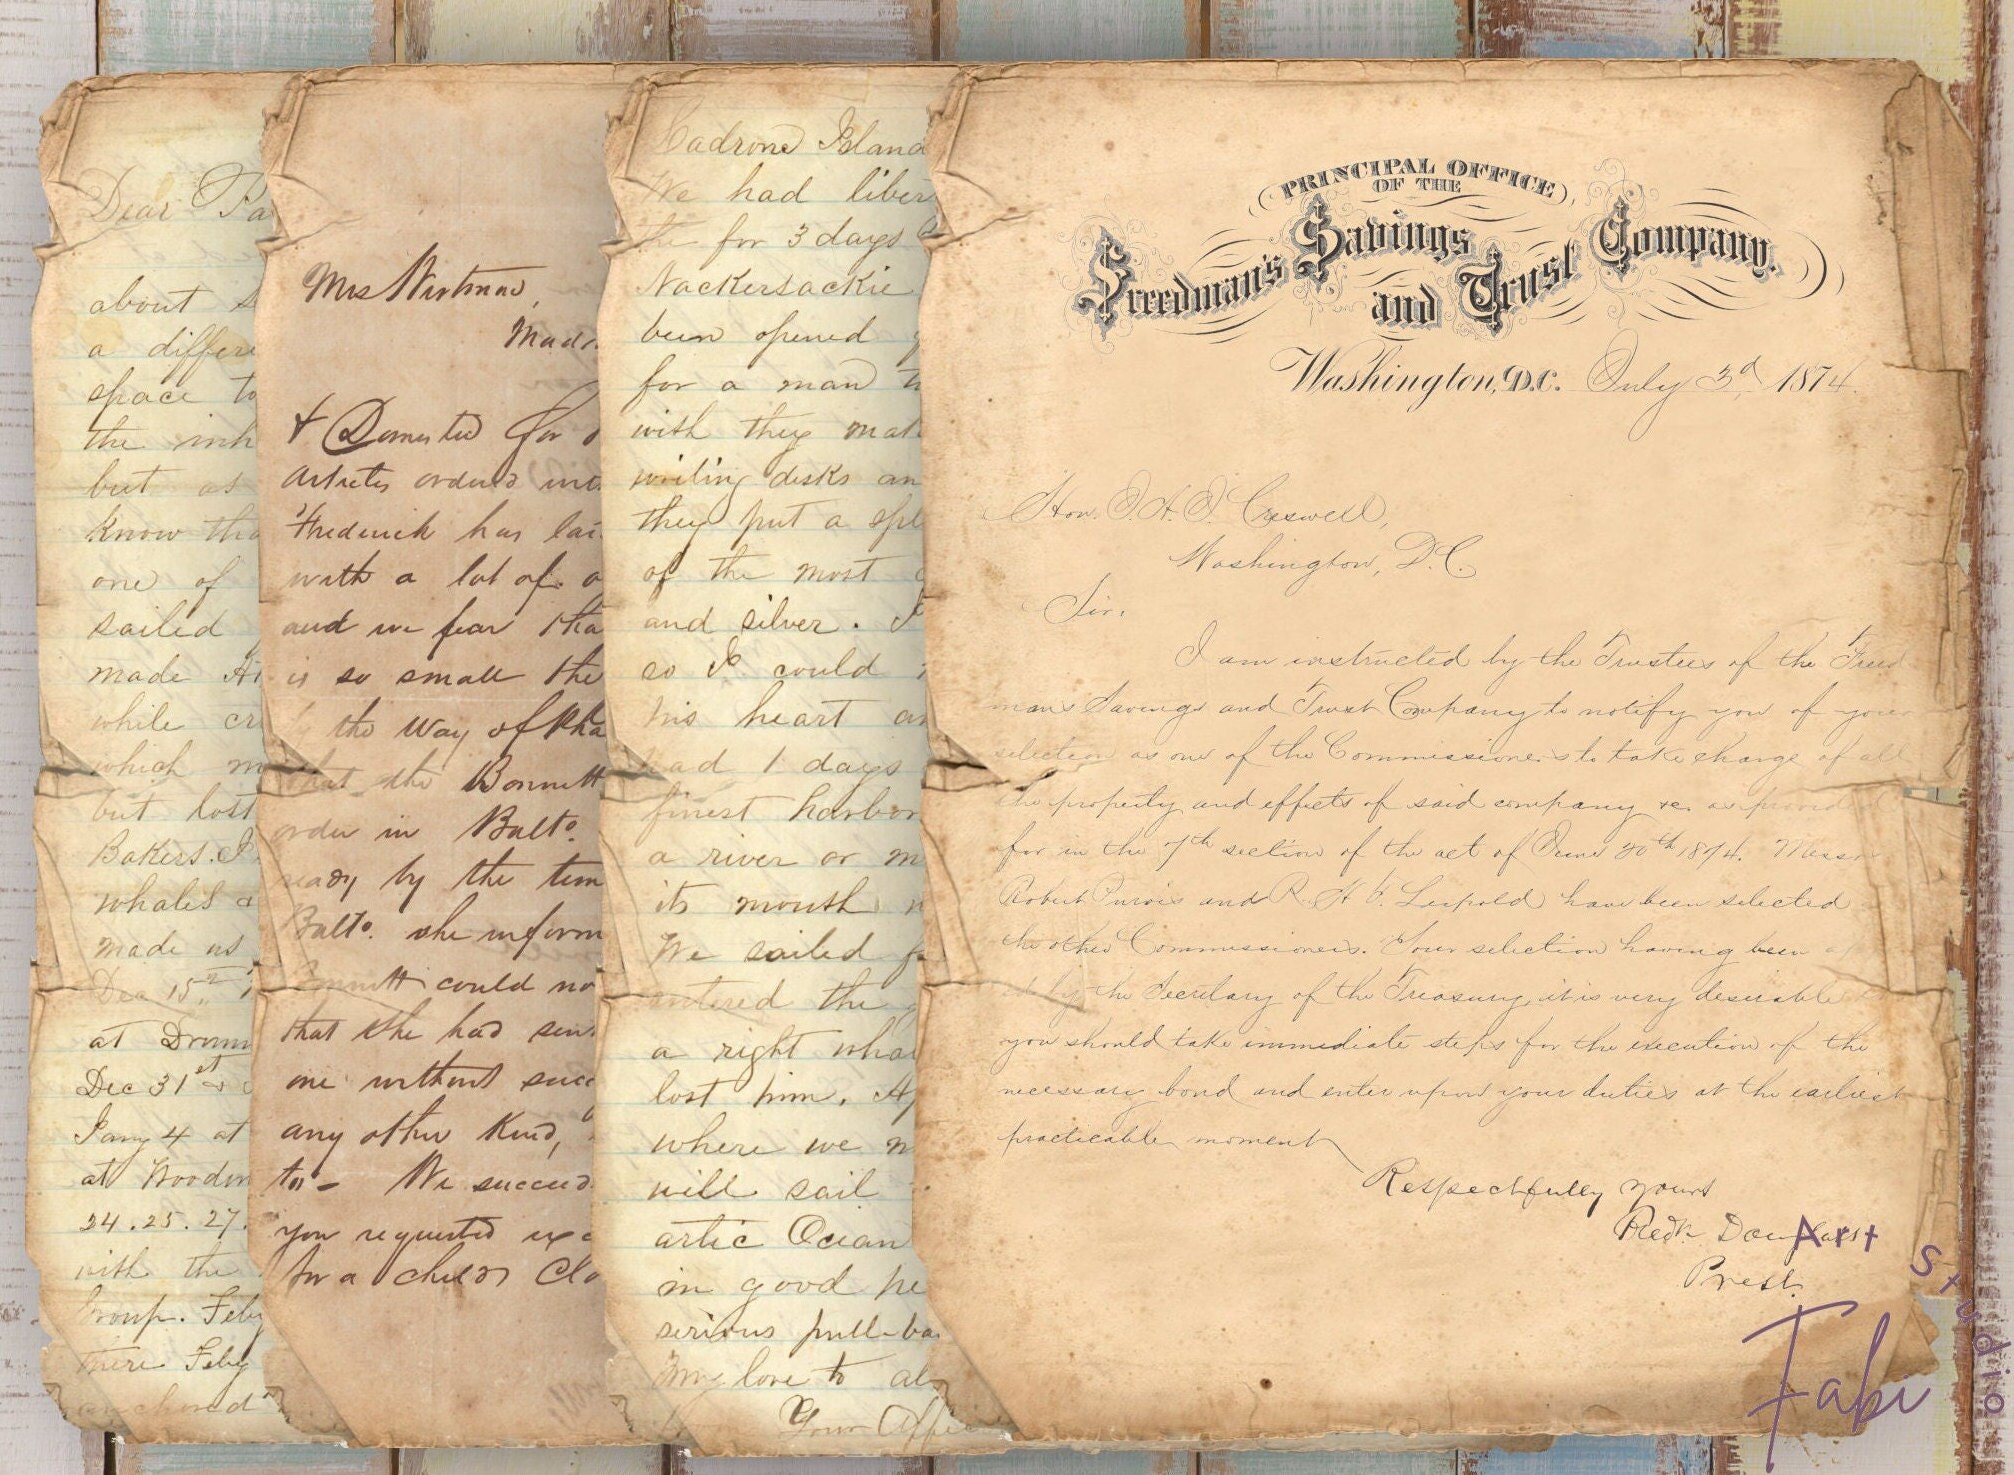 Dear Pa
about s
a differe
space to
the inh
but as
know tha
one of
sailed
made At
while cr
which m
but lost
Bakers I
whales a
made us
Dec 15th
at Drum
Dec 31st &
Jany 4 at
at Wooden
24. 25. 27.
with the
Group. Feby
there Feby
anchored
Mrs
Mad
& Domestic for
Articles ordered
Frederick has
with a lot of
and we fear tha
is so small the
by the way of Pha
that the Bonnett
order in Balto.
ready by the tim
Balto. she inform
Bonnett could no
that she had sen
one without succ
any other Kind,
to - We succeed
you requested
for a childs Clo
Island
We had liber
the for 3 days
Nackersackie
been opened
for a man
with they mak
writing desks an
they put a spl
of the most
and silver. I
so I could
his heart an
had 1 days
finest harbor
a river or m
its mouth
We sailed f
entered the
a right whal
lost him. Af
where we
will sail
artic Ocean
in good he
serious pull-ba
My love to al
Your Affec
PRINCIPAL OFFICE
OF THE
Freedman's Savings and Trust Company.
Washington, D.C. July 3d, 1874.
Hon. J. A. J. Creswell,
Washington, D.C.
Sir.
I am instructed by the Trustees of the Freed
mans Savings and Trust Company to notify you of your
selection as one of the Commissioners to take charge of all
the property and effects of said company &c. as provided
for in the 7th section of the act of June 20th 1874. Messrs
Robert Purvis and R. H. T. Leipold have been selected
the other Commissioners. Your selection having been
by the Secretary of the Treasury, it is very desirable
you should take immediate steps for the execution of the
necessary bond and enter upon your duties at the earliest
practicable moment
Respectfully yours
Fredk Douglass
Prest.
Fabi Art Studio